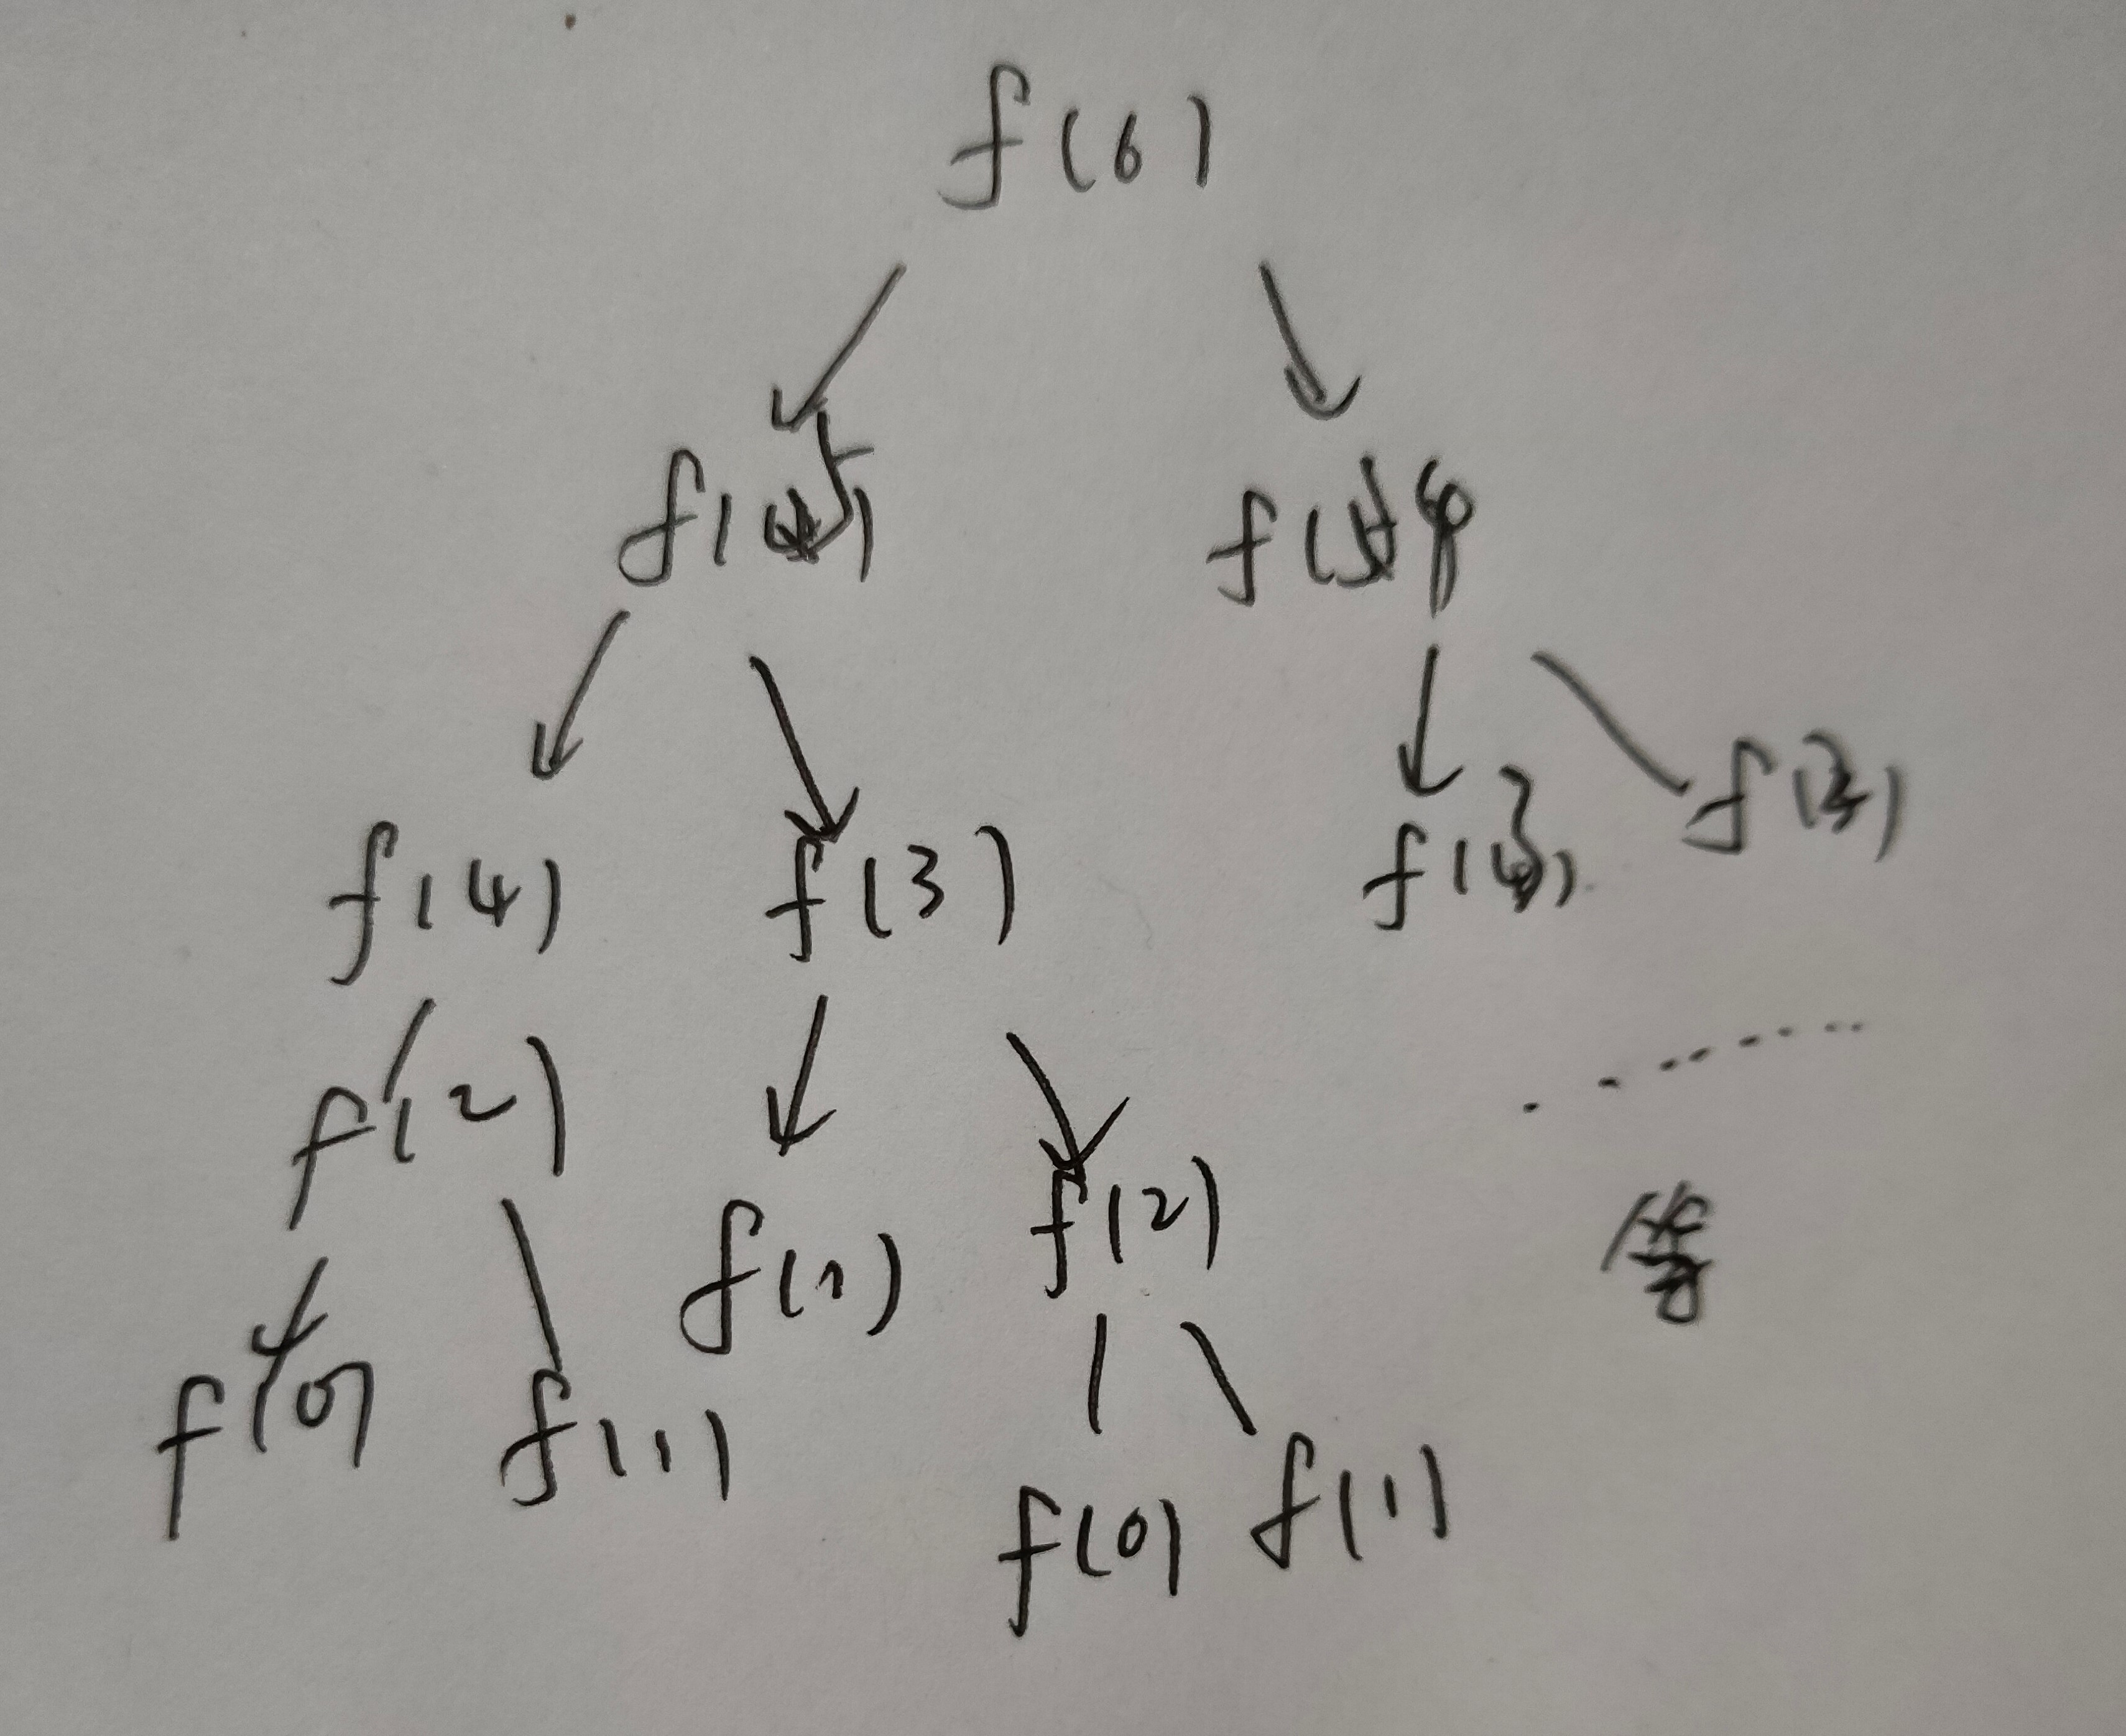 f(6)
f(5) f(4
f(4) f(3) f(3) f(2)
f(2) f(1) f(2)
f(0) f(1) f(0) f(1)
等